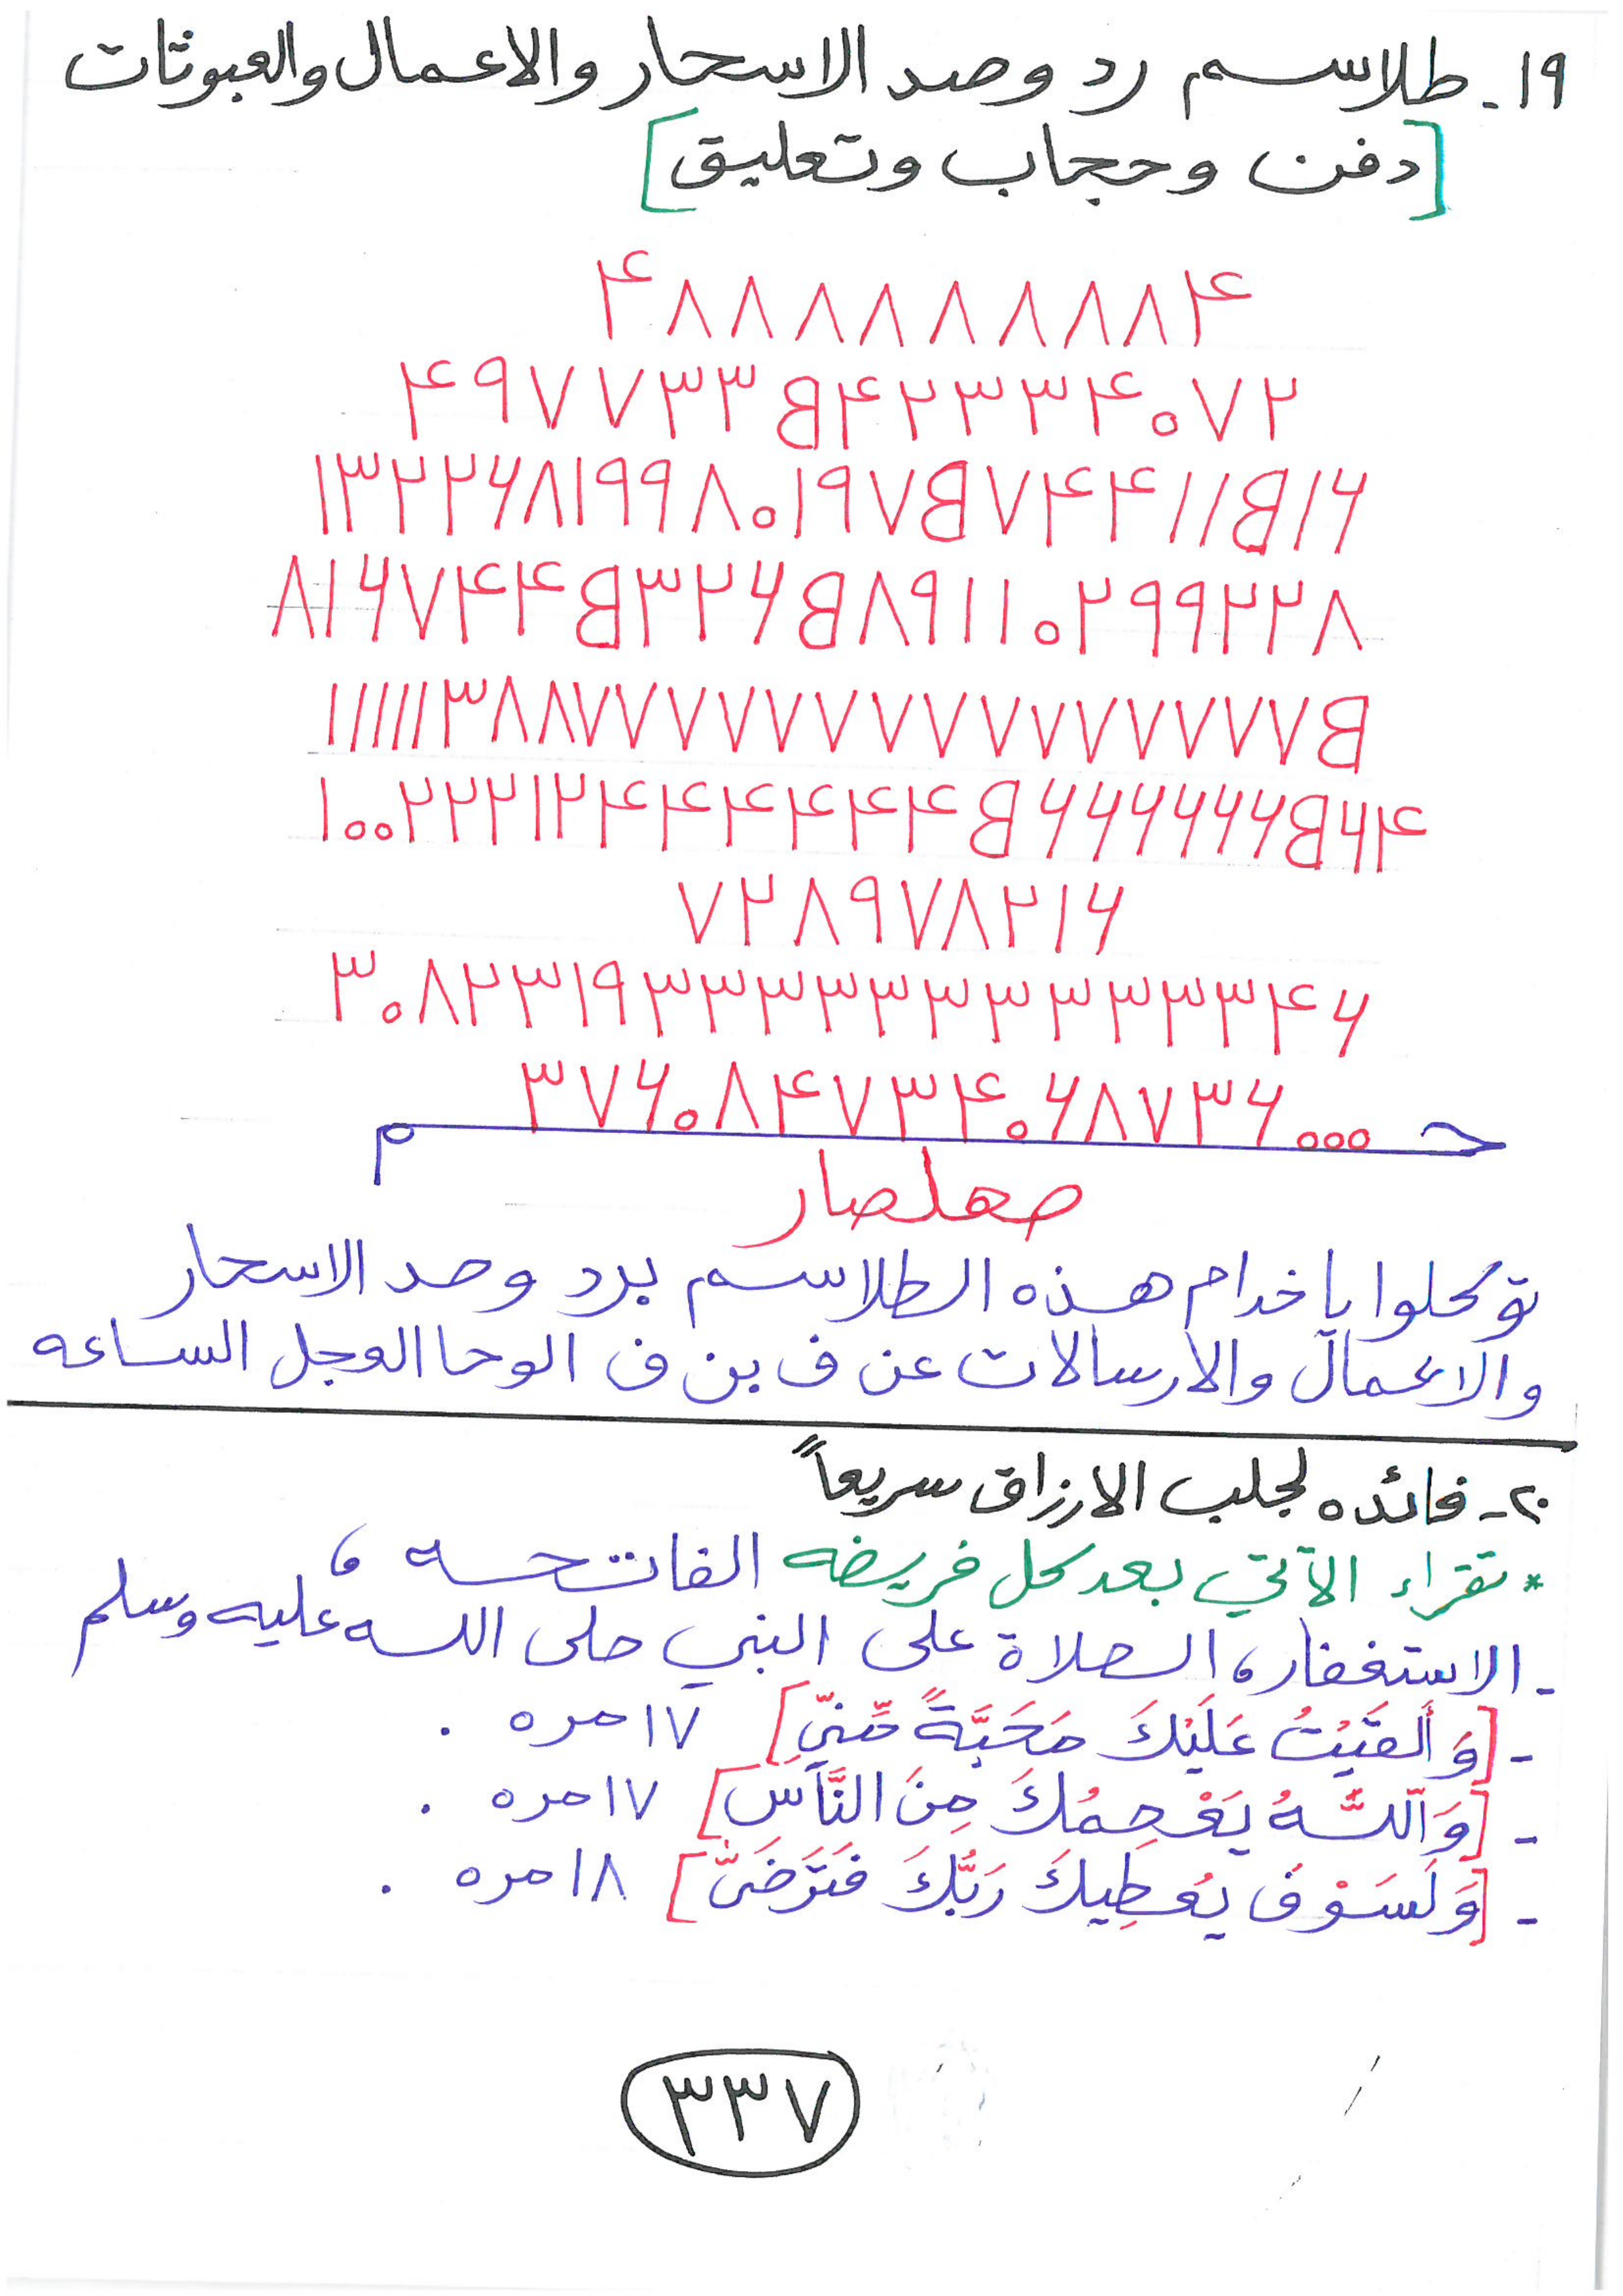 ١٩- طلاسم رد وصد الاسحار والاعمال والعبوثات
[دفن وحجاب وتعليق]
۴٨٨٨٨٨٨٨٨۴
۴٩٧٧٣٣B۴٢٣٣۴٠٧٢
١٣٢٢۶٨١٩٩٨٠١٩٧B٧۴۴١١B١۶
٨١۶٧۴۴B٣٢۶B٨٩١١٠٢٩٩٢٢٨
١٠٠٢٢٢١٢۴۴۴۴۴۴B۶۶۶۶۶۶B۶۴
٧٢٨٩٧٨٢١۶
٣٠٨٢٣١٩٣٣٣٣٣٣٣٣٣٣٣۴۶
٣٧۶٠٨۴٧٣۴٠۶٨٧٣۶٠٠٠
صهلصار
توكلوا ياخدام هذه الطلاسم برد وصد الاسحار
والاعمال والارسالات عن ف بن ف الوحا العجل الساعه
٢٠- فائده لجلب الارزاق سريعاً
* تقراء الآتي بعد كل فريضه الفاتحه ،
- الاستغفار، الصلاة على النبي صلى الله عليه وسلم
- [وَأَلقَيْتُ عَلَيْكَ مَحَبَّةً مِّنِّي] ١٧ مره .
- [وَاللَّهُ يَعْصِمُكَ مِنَ النَّاسِ] ١٧ مره .
- [وَلَسَوْفَ يُعْطِيكَ رَبُّكَ فَتَرْضَىٰ] ١٨ مره .
٣٣٧